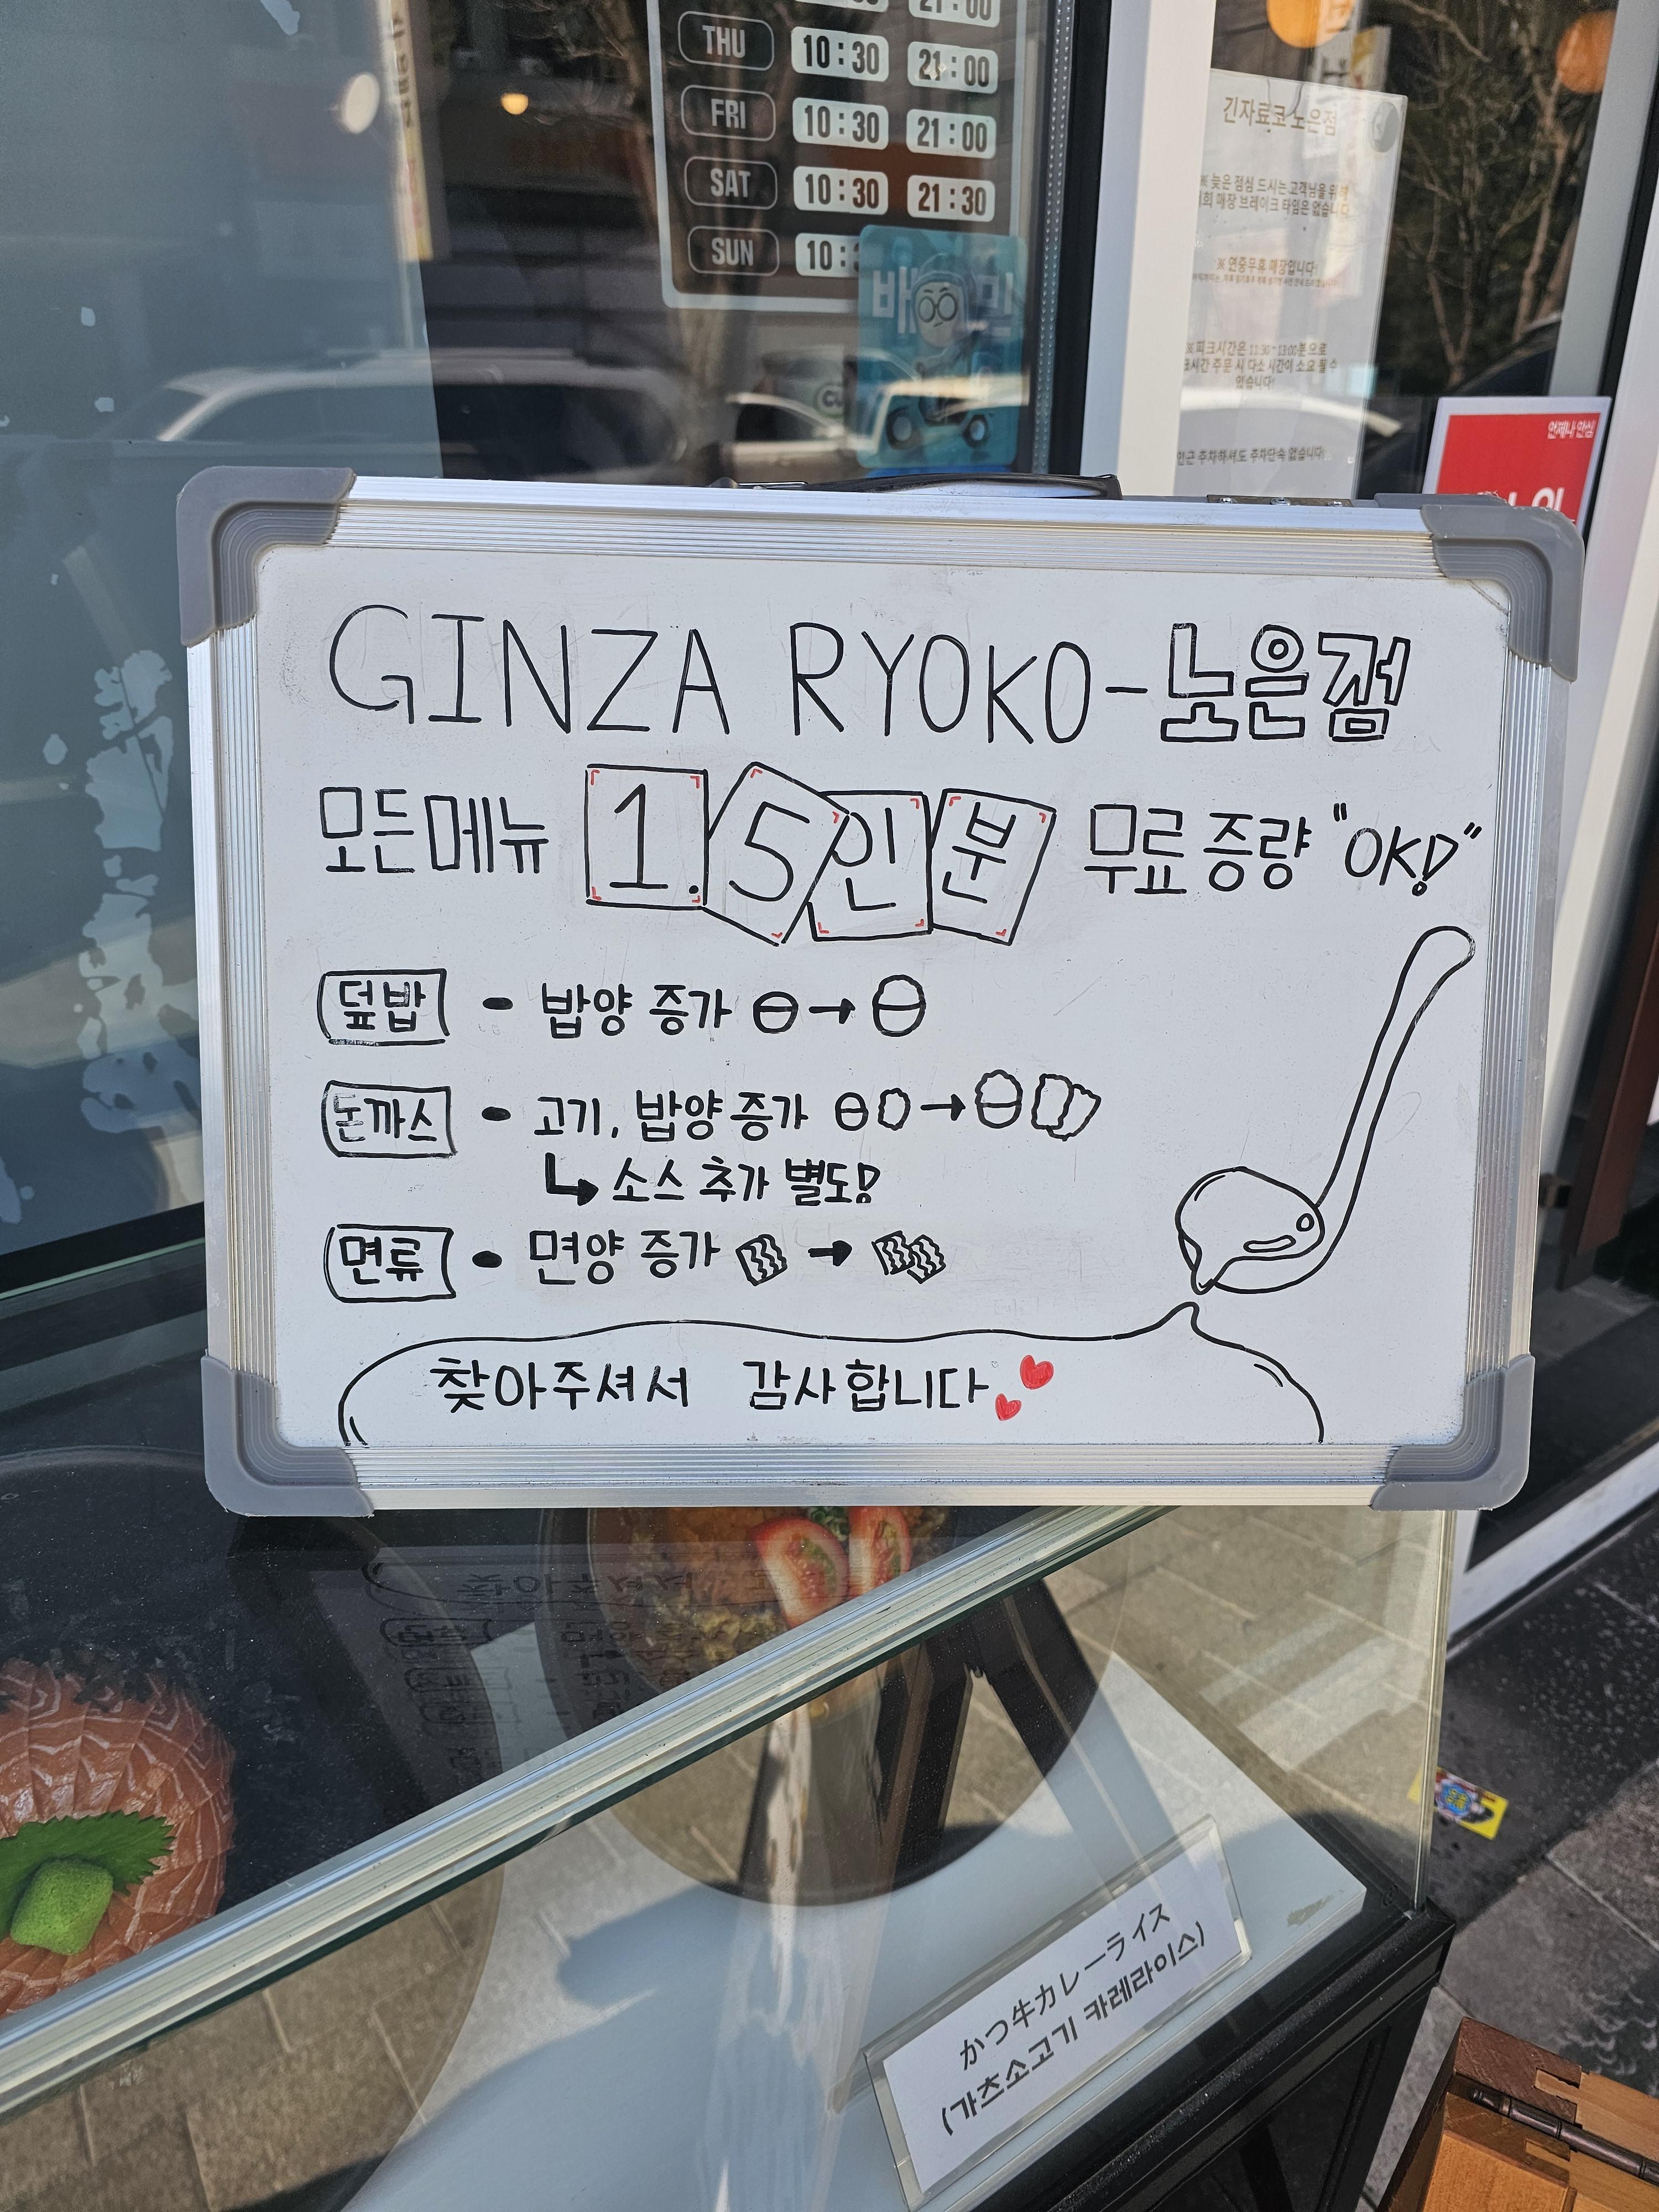 21:00
THU 10:30 21:00
FRI 10:30 21:00
SAT 10:30 21:30
SUN 10:
배
긴자료코 노은점
※ 늦은 점심 드시는 고객님을 위해
저희 매장 브레이크 타임은 없습니다
※ 연중무휴 매장입니다!
※ 피크시간은 11:30~13:00분으로
크시간 주문 시 다소 시간이 소요 될 수
있습니다!
인근 주차하셔도 주차단속 없습니다!
언제나 안심
GINZA RYOKO-노은점
모든메뉴 1.5인분 무료 증량 "OK!"
덮밥 - 밥양 증가
돈까스 - 고기, 밥양 증가
소스 추가 별도!
면류 - 면양 증가
찾아주셔서 감사합니다
かつ牛カレーライス
(가츠소고기 카레라이스)